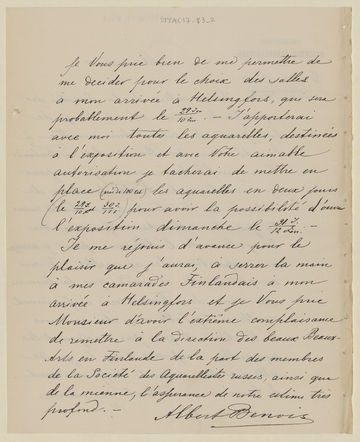 Je Vous prie bien de me permettre de
me décider pour le choix des salles
à mon arrivée à Helsingfors, que sera
probablement le 29 — J'apporterai
avec moi toutes les aquarelles, destinées
à l'exposition et avec Votre aimable
autorisation je tacherai de mettre en
place les aquarelles en deux jours
(le pour avoir la possibilité d'ouvrir
l'exposition dimanche le —
Je me réjouis d'avance pour le
plaisir que j'aurai à serrer la main
à mes camarades Finlandais à mon
arrivée à Helsingfors et je Vous prie
Monsieur d'avoir l'extrême complaisance
de remettre à la direction des beaux Beaux-
Arts en Finlande de la part des membres
de la Société des Aquarellistes russes, ainsi que
de la mienne, l'assurance de notre estime très
profond. —
Albert Benois